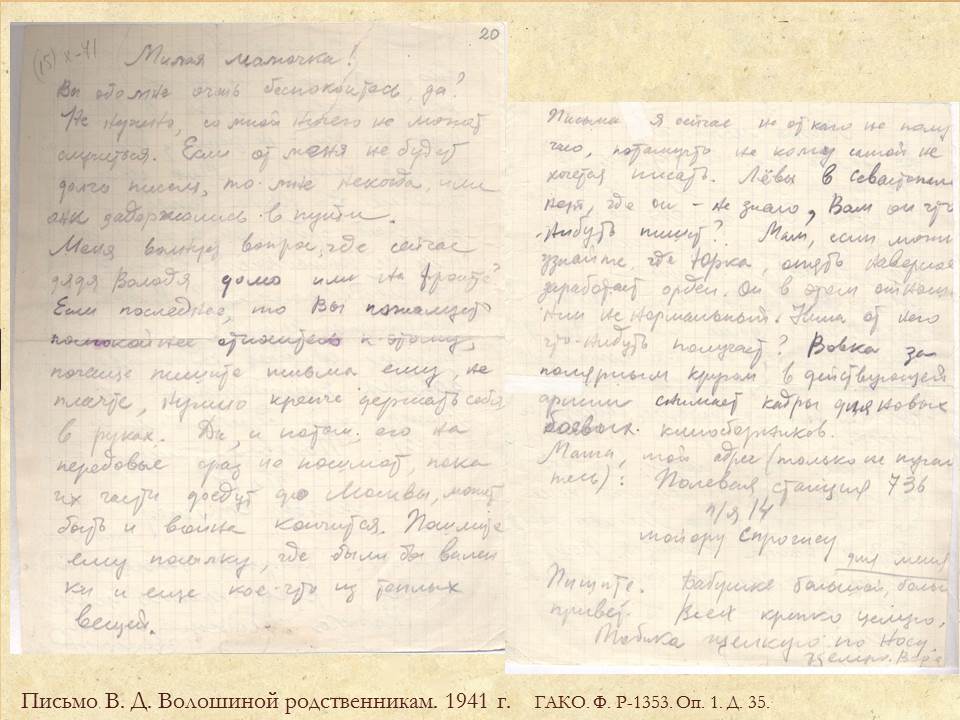 20
(15) X-41
Милая мамочка!
Вы обо мне очень беспокоитесь, да?
Не нужно, со мной ничего не может
случиться. Если от меня не будет
долго писем, то мне некогда, или
они задержались в пути.
Меня волнует вопрос, где сейчас
дядя Володя дома или на фронте?
Если последнее, то Вы пожалуйста
поспокойнее относитесь к этому,
почаще пишите письма ему, не
плачте, нужно крепче держать себя
в руках. Да, и потом, его на
передовые сразу не пошлют, пока
их части дойдут до Москвы, может
быть и война кончится. Пошлите
ему посылку, где были бы вален
ки и еще кое-что из теплых
вещей.
Письма я сейчас не от кого не полу
чаю, потамушто не кому самой не
хочется писать. Лёвы в Севастополе
нет, где он - не знаю, Вам он что
нибудь пишет? Мам, если можно
узнайте, где Юрка, опять наверное
заработает орден. Он в этом отноше
нии не нормальный. Нина от него
что-нибудь получает? Вовка за
полярным кругом в действующей
армии снимает кадры для новых
боевых киносборников.
Мама, мой адрес (только не пугай
тесь): Полевая станция 736
п/я 14
майору Спрогису
для меня
Пишите. Бабушке большой, больш
привет. Всех крепко целую.
щелкую по носу.
Целую. Вера
Письмо В. Д. Волошиной родственникам. 1941 г. ГАКО. Ф. Р-1353. Оп. 1. Д. 35.